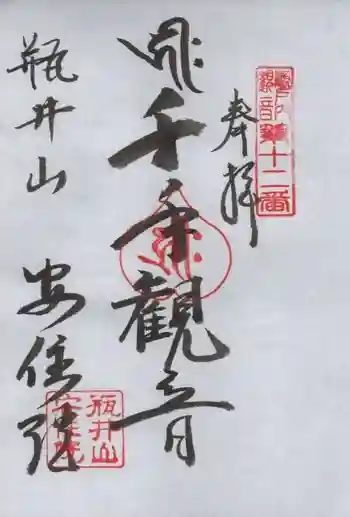 奉拝
十二番
千手観音
瓶井山
安住院
瓶井山
安住院